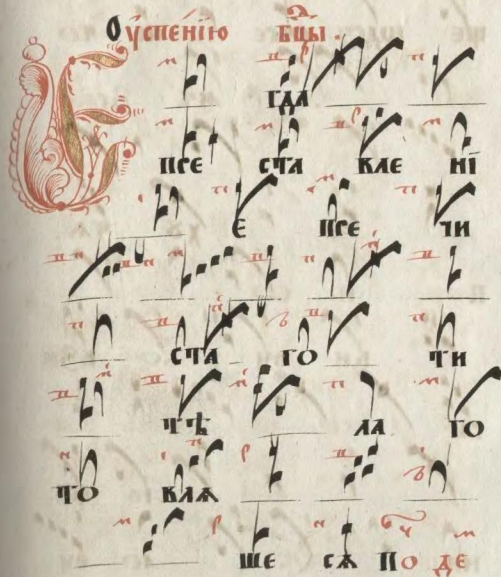 Оу҆спе́нїю Бцы .
Е гда
пре ста вле нї
е пре чи
ста го ти
тѣ ла го
то влѧ
ше сѧ По де